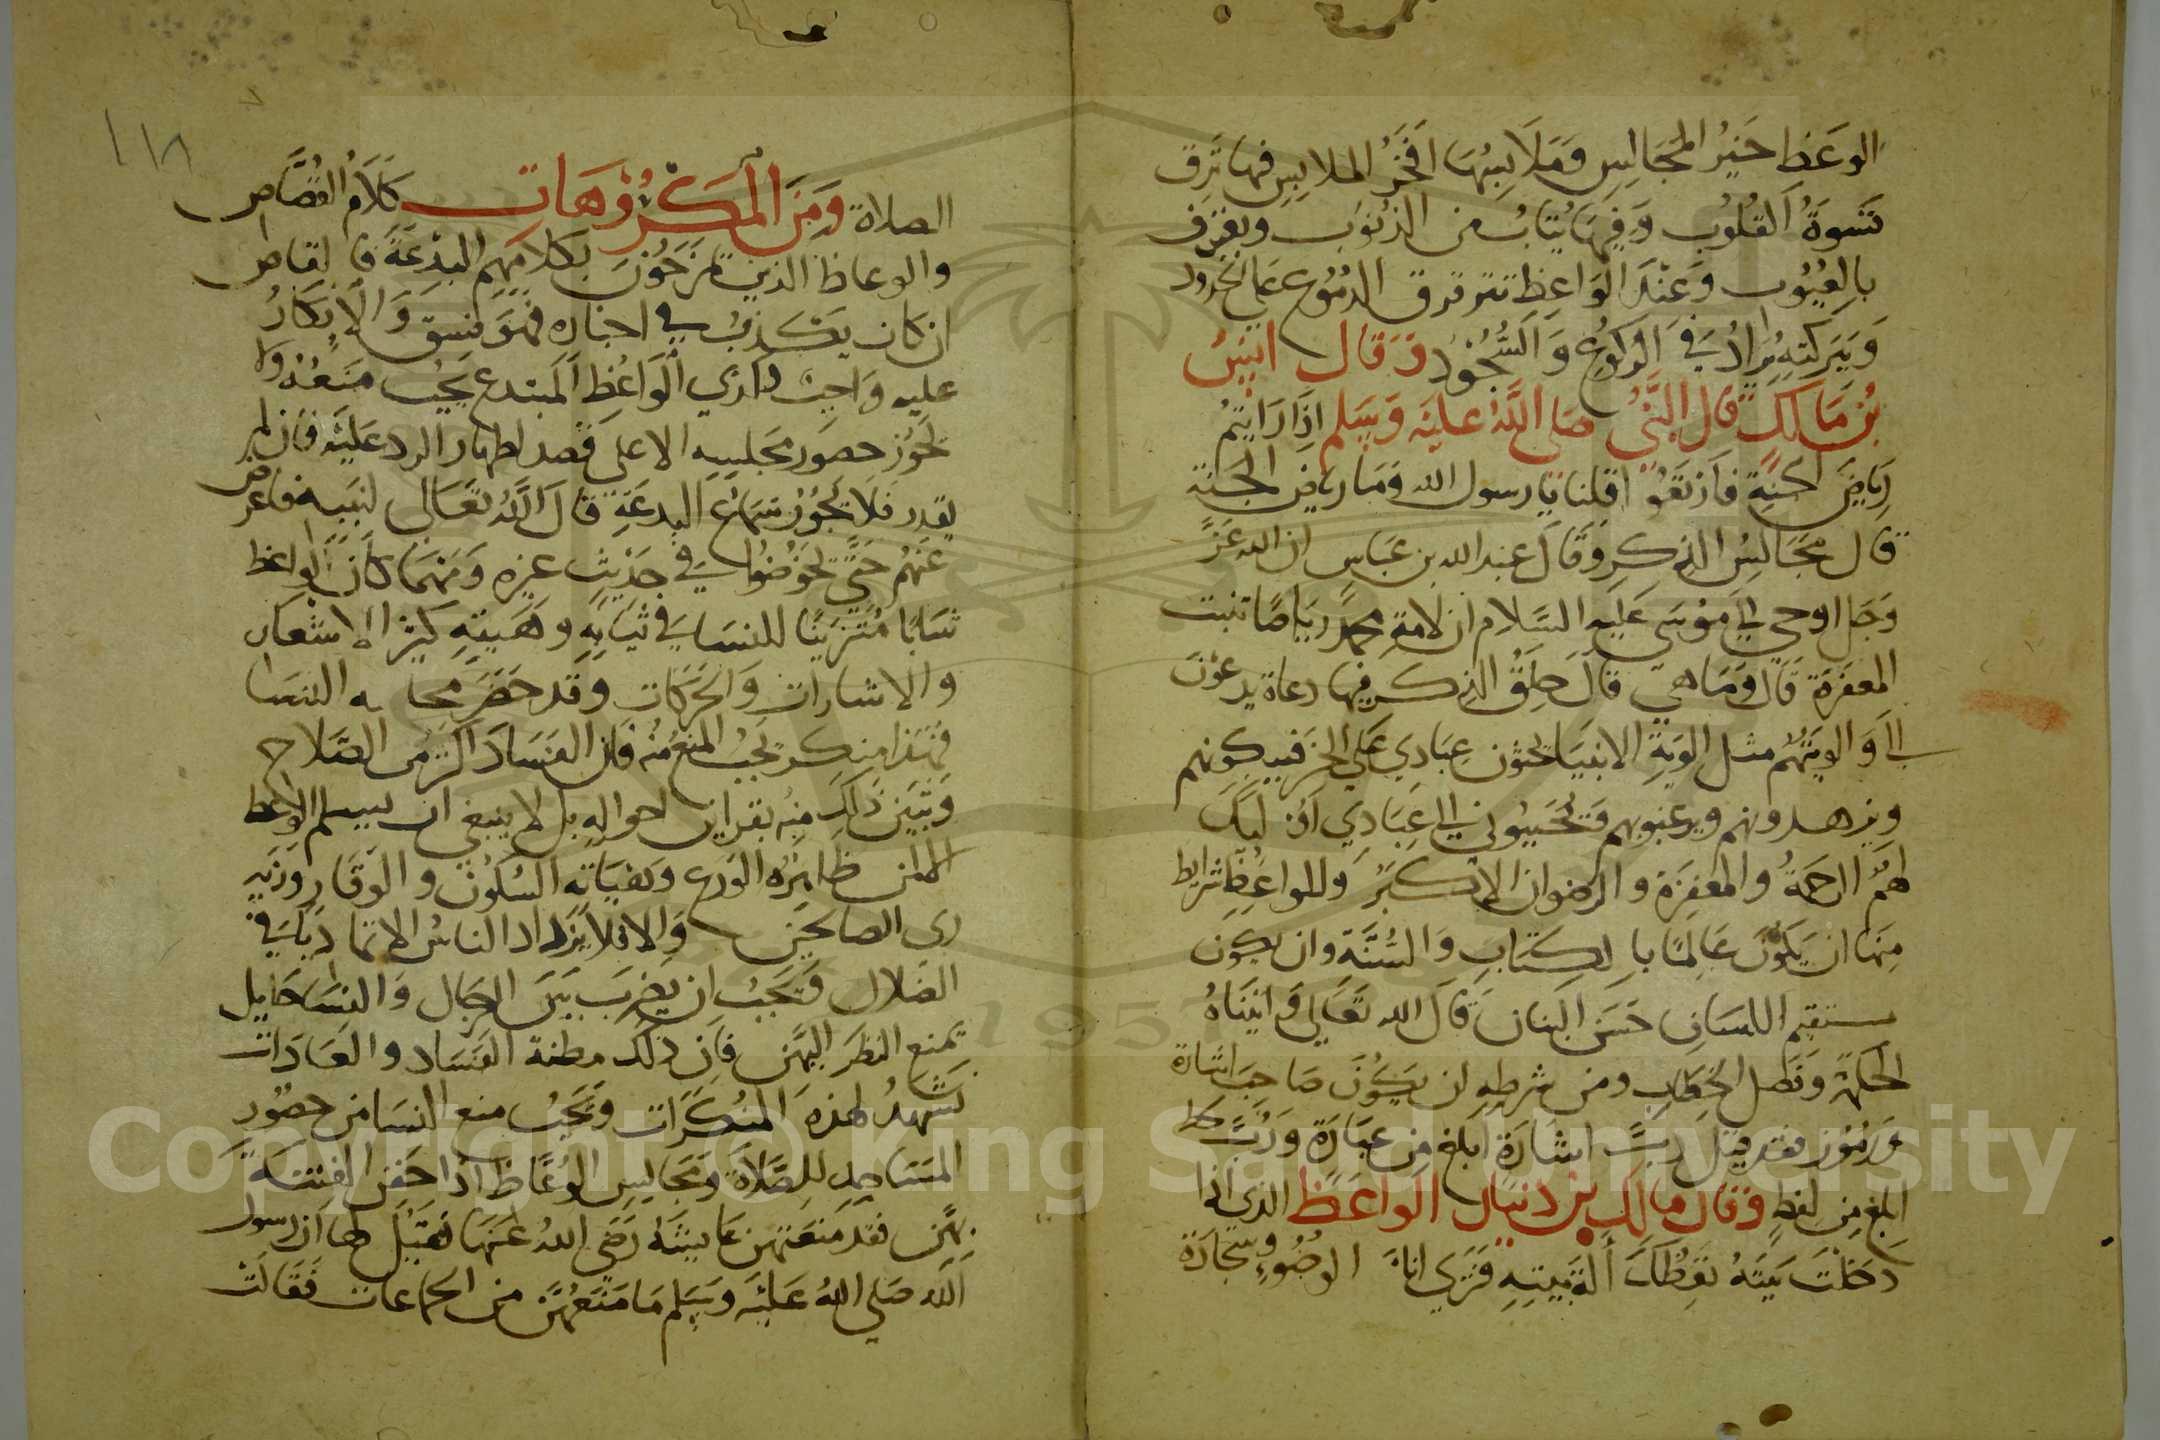 الوعظ خير المجالس وملابسها افخر الملابس فيها ترق
قسوة القلوب وفيها يتاب من الذنوب ويعترف
بالعيوب وعند الواعظ تترقرق الدموع على الخدود
وببركته يزاد في الركوع والسجود وقال انس
بن مالك قال النبي صلى الله عليه وسلم اذا رايتم
رياض الجنة فارتعوا قلنا يا رسول الله وما رياض الجنة
قال مجالس الذكر وقال عبد الله بن عباس ان الله عز
وجل اوحى الى موسى عليه السلام ان لامة محمد رياضا تنبت
المغفرة قال وما هي قال حلق الذكر فيها دعاة يدعون
الي والويتهم مثل الوية الانبيا يحثون عبادي على الخير فيذكرونهم
ويزهدونهم ويرغبونهم فتحببوني الى عبادي اوليك
لهم الرحمة والمغفرة والرضوان الاكبر وللواعظ شرايط
منها ان يكون عالما بالكتاب والسنة وان يكون
مستقيم اللسان حسن البيان قال الله تعالى واتيناه
الحكمة وفصل الخطاب ومن شرطه ان يكون صاحب اشارة
ورموز فقد قيل رب اشارة ابلغ من عبارة ورب لحظ
ابلغ من لفظ وقال مالك بن دينار الواعظ الذي اذا
دخلت بيته تعظك الة بيته فترى اناء الوضوء وسجادة
١١٨
الصلاة ومن المكروهات كلام القصاص
والوعاظ الذين يمزجون بكلامهم البدعة فالقاص
ان كان يكذب في اخباره فهو فسق والانكار
عليه واجب وكذي الواعظ المبتدع يجب منعه ولا
يجوز حضور مجلسه الا على قصد اظهار الرد عليه فان لم
يقدر فلا يجوز سماع البدعة قال الله تعالى لنبيه فاعرض
عنهم حتى يخوضوا في حديث غيره ومهما كان الواعظ
شابا متزينا للنسا في ثيابه وهيئته كثير الاشعار
والاشارات والحركات وقد حضر مجلسه النسا
فهذا منكر يجب المنع منه فان الفساد اكثر من الصلاح
وتبين ذلك منه بقراين احواله بل لا ينبغي ان يسلم الوعظ
الا لمن ظاهره الورع وهيئاته السكون والوقار وزيه
زي الصالحين والا فلا يزداد الناس الا تماديا في
الضلال ويجب ان يضرب بين الرجال والنسا حايل
يمنع النظر اليهن فان ذلك مظنة الفساد والعادات
تشهد لهذه المنكرات ويجب منع النسا من حضور
المساجد للصلاة ومجالس الوعاظ اذا خفن الفتنة
بهن فقد منعتهن عايشة رضي الله عنها فقيل لها ان رسول
الله صلى الله عليه وسلم ما منعهن من الجماعات فقالت
Copyright © King Saud University
1957